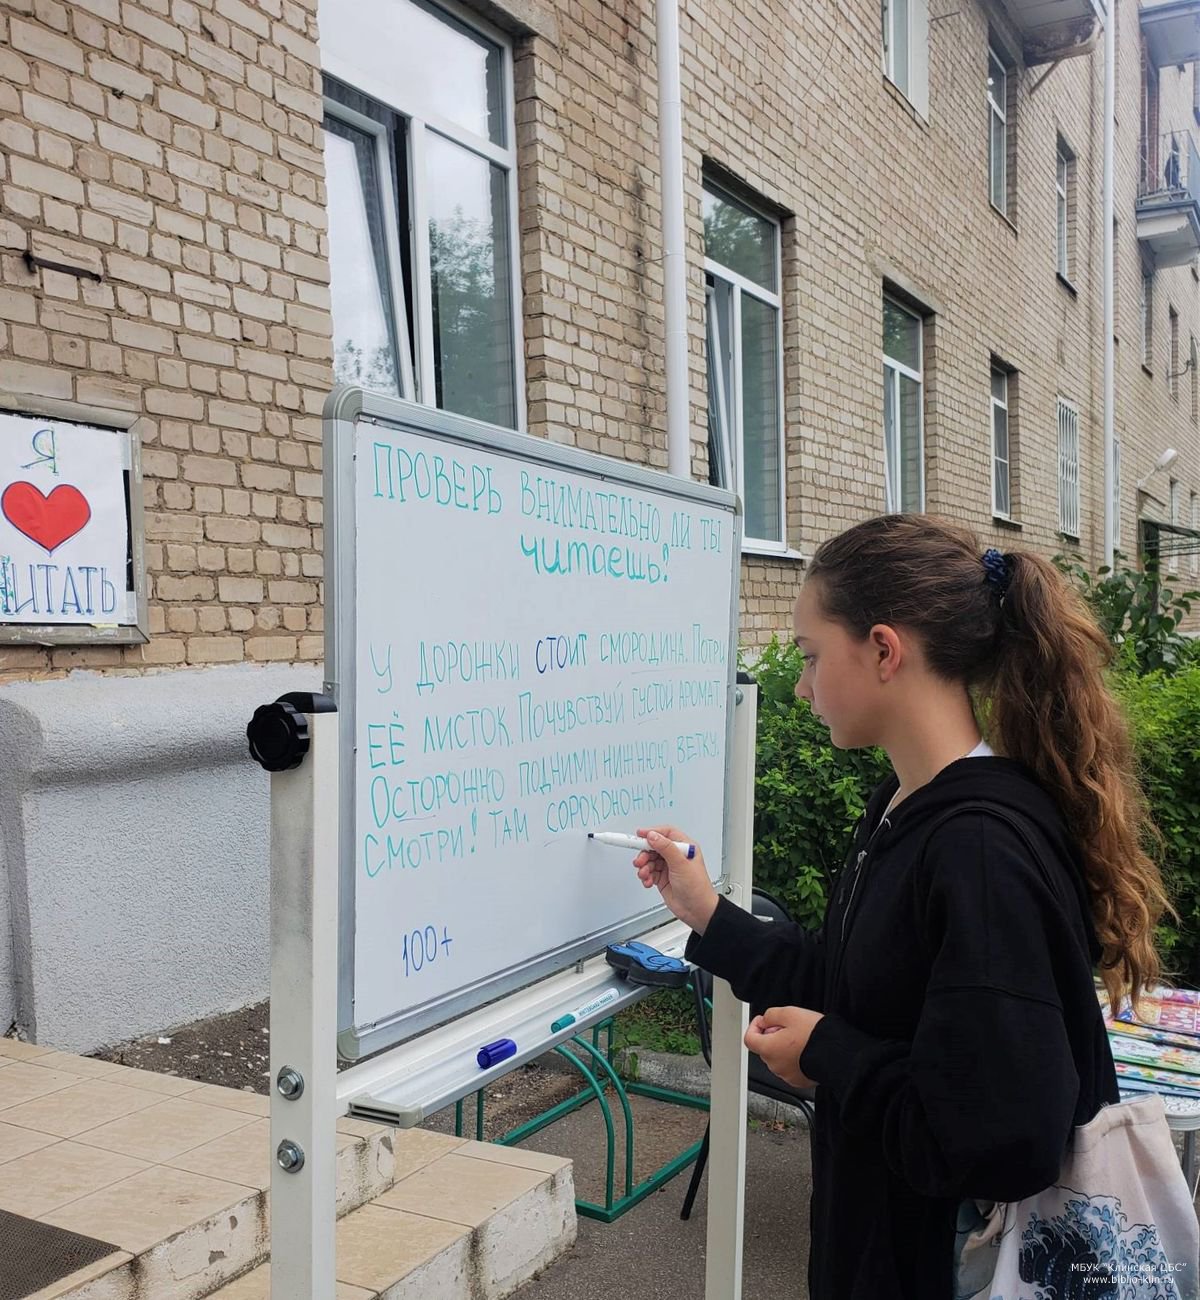 Я
ЧИТАТЬ
ПРОВЕРЬ ВНИМАТЕЛЬНО ЛИ ТЫ
ЧИТАЕШЬ?
У ДОРОЖКИ СТОИТ СМОРОДИНА. ПОТРИ
ЕЁ ЛИСТОК. ПОЧУВСТВУЙ ГУСТОЙ АРОМАТ.
ОСТОРОЖНО ПОДНИМИ НИЖНЮЮ ВЕТКУ.
СМОТРИ! ТАМ СОРОКОНОЖКА!
100+
WHITEBOARD MARKER
МБУК "Клинская ЦБС"
www.biblio-klin.ru